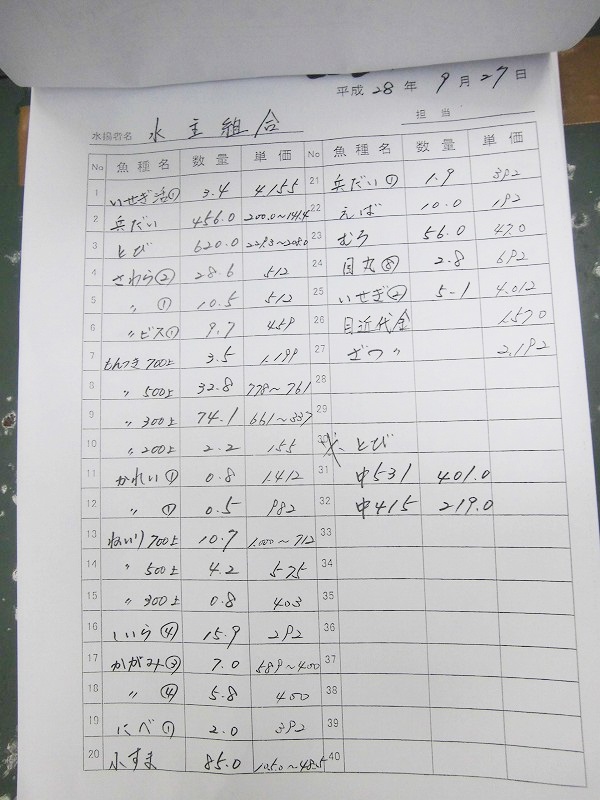 平成 28 年 9 月 27 日
水揚者名 水主組合 担当
No 魚種名 数量 単価 No 魚種名 数量 単価
1 いせぎ活① 3.4 4155 21 兵だい① 1.9 392
2 兵だい 456.0 200.0~141.4 22 えば 10.0 192
3 とび 620.0 229.3~208.0 23 むろ 56.0 47.0
4 さわら② 28.6 512 24 目丸⑧ 2.8 692
5 〃 ① 10.5 512 25 いせぎ② 5-1 4.012
6 〃ビス① 9.7 459 26 目近代金 1.570
7 もんつき 700上 3.5 1.199 27 ざつ 〃 2.192
8 〃 500上 32.8 778~761 28
9 〃 300上 74.1 661~337 29
10 〃 200上 2.2 155 30 ※ とび
11 かれい① 0.8 1.412 31 中531 401.0
12 〃 ① 0.5 982 32 中415 219.0
13 ねいり 700上 10.7 1.000~712 33
14 〃 500上 4.2 575 34
15 〃 300上 0.8 403 35
16 しいら④ 15.9 292 36
17 かがみ③ 7.0 589~400 37
18 〃 ④ 5.8 400 38
19 にべ① 2.0 392 39
20 ふすま 85.0 105.0~48.5 40